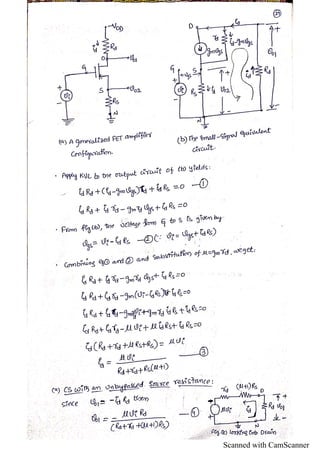 (21)
VDD
id
Rd
D
Vo1
G
S
Vo2
Vi
RS
N
D
id
rd
id-gmvgs
gmvgs
G
Vgs
S
Vi
RS
id
Vo2
Rd
Vo1
N
(a) A generalized FET amplifier
Configuration
(b) The Small-Signal equivalent
circuit
• Apply KVL to the output circuit of (b) yields:
id Rd + (id - gm Vgs) rd + id RS = 0 —①
id Rd + id rd - gm rd Vgs + id RS = 0
• From fig(b), the voltage from G to S is given by
Vgs = Vi - id RS —② (∵ Vi = Vgs + id RS)
• Combining eq① and ② and substitution of μ = gm rd, we get:
id Rd + id rd - gm rd Vgs + id RS = 0
id Rd + id rd - gm (Vi - id RS) rd + id RS = 0
id Rd + id rd - gm rd Vi + gm rd id RS + id RS = 0
id Rd + id rd - μ Vi + μ id RS + id RS = 0
id (Rd + rd + μ RS + RS) = μ Vi
id = μ Vi / Rd + rd + RS (μ+1) —③
(*) CS with an unbypassed source resistance:
Since Vo1 = - id Rd then
Vo1 = - μ Vi Rd / (Rd + rd + (μ+1) RS) —④
rd (μ+1)RS D
μVi
id
Rd Vo1
N
Fig (c): looking into Drain
Scanned with CamScanner